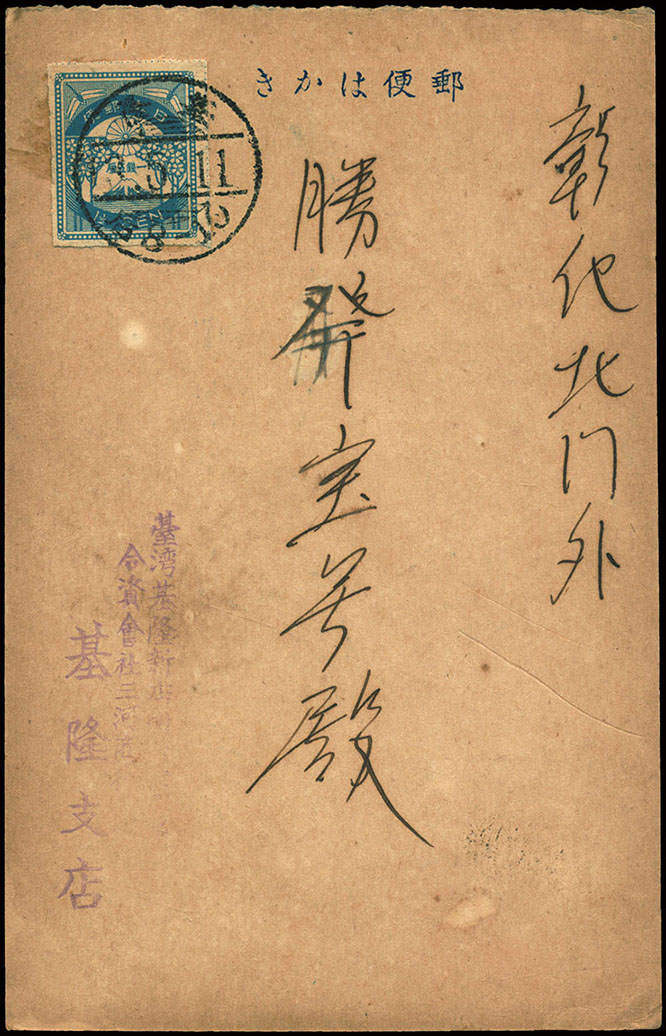 郵便はかき
彰化北門外
勝發宝号殿
臺湾基隆新店
合資會社三河
基隆支店
11